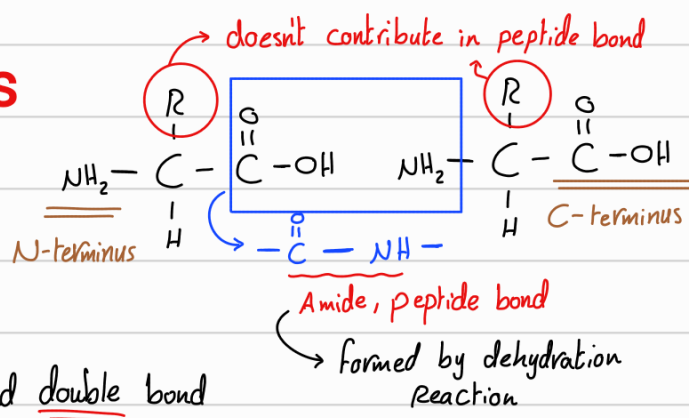 doesn't contribute in peptide bond
S
R
R
O
O
NH₂ — C — C — OH
NH₂ — C — C — OH
H
H
N-terminus
C-terminus
O
— C — NH —
Amide, peptide bond
formed by dehydration
Reaction
d double bond